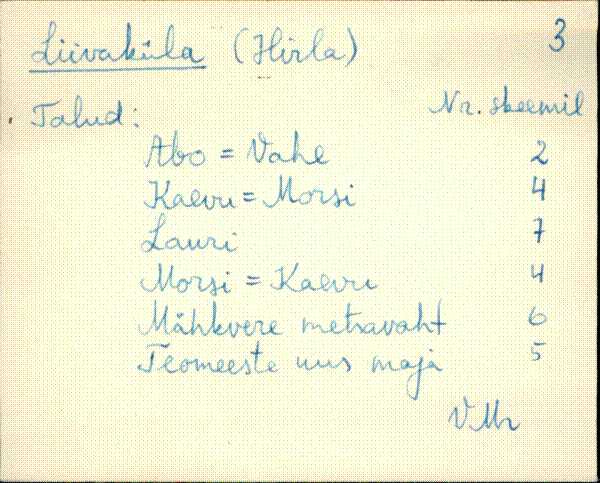 Liivaküla (Hirla) 3
Talud: Nr. skeemil
Abo = Vahe 2
Kaevu = Morsi 4
Lauri 7
Morsi = Kaevu 4
Mähkvere metsavaht 6
Teomeeste uus maja 5